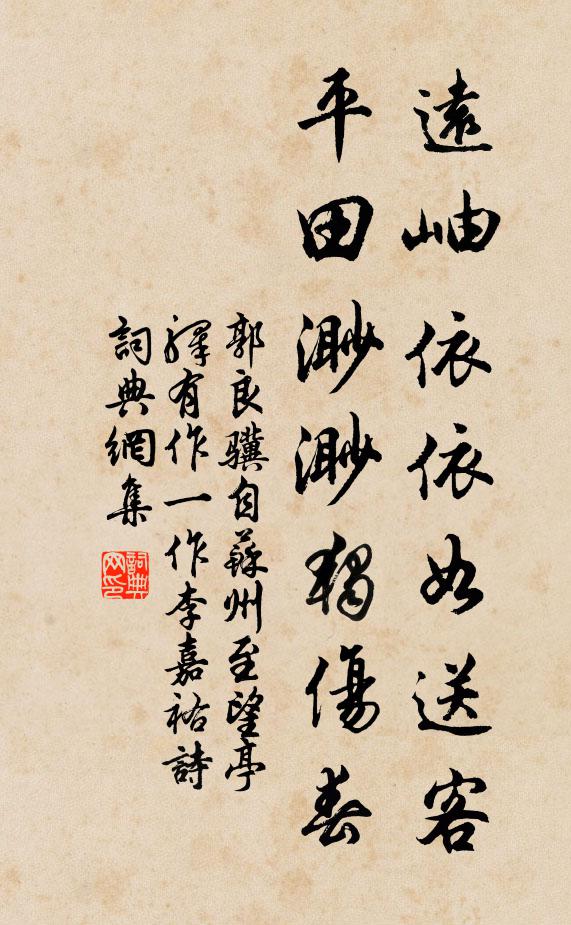 遠岫依依如送客
平田渺渺獨傷春
郭良驥自蘇州至望亭
驛有作一作李嘉祐詩
詞典網集
詞典
网印